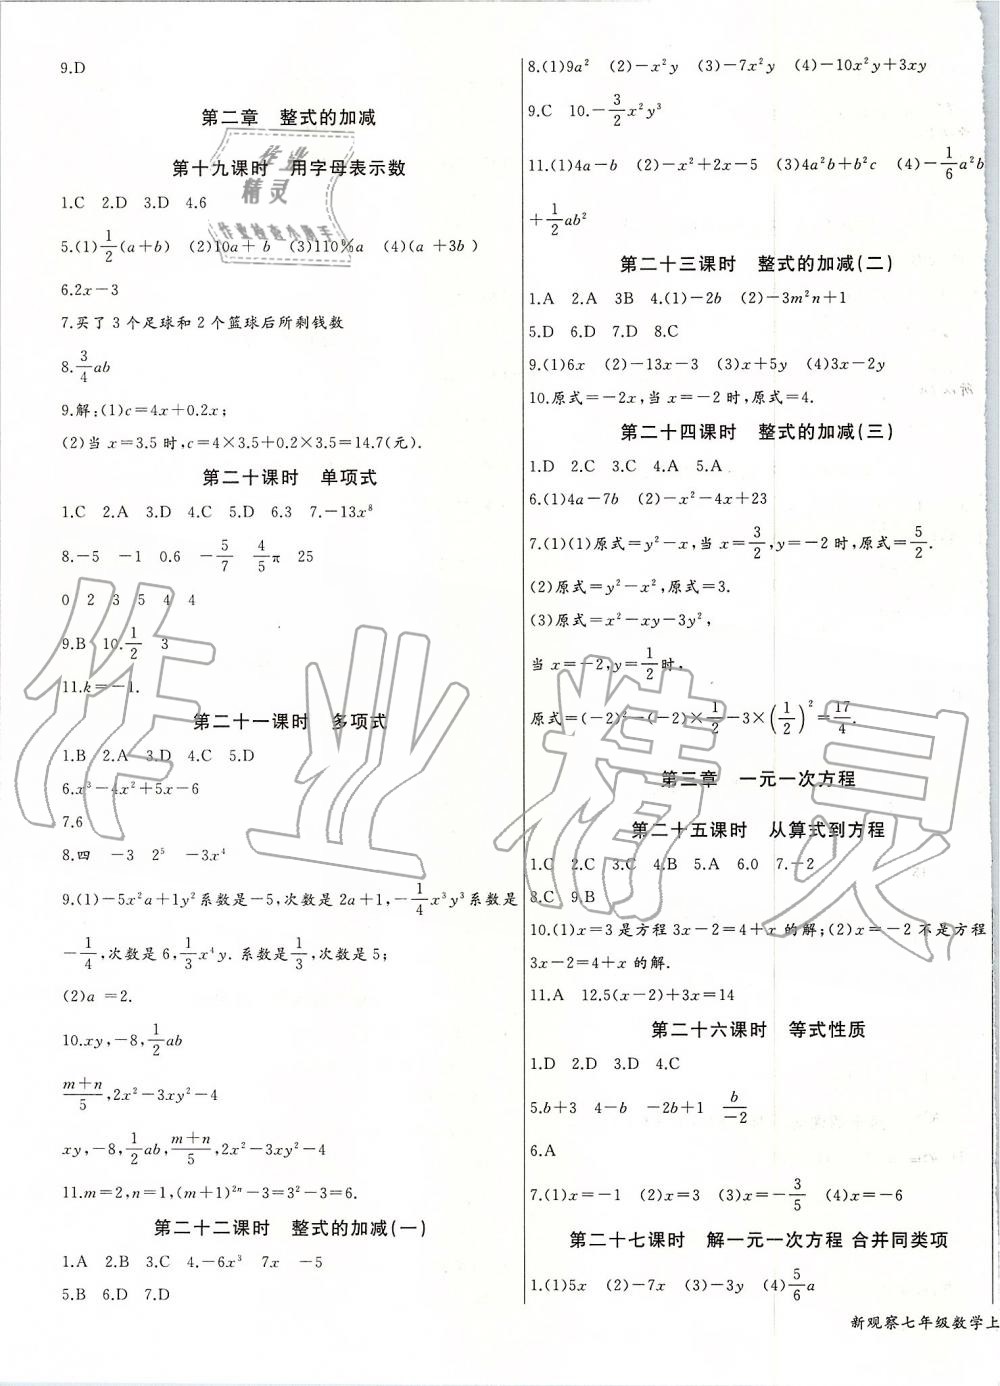 9.D
第二章 整式的加减
第十九课时 用字母表示数
1.C 2.D 3.D 4.6
5.(1)\frac{1}{2}(a+b) (2)10a+b (3)110%a (4)(a+3b)
6.2x-3
7.买了3个足球和2个篮球后所剩钱数
8.\frac{3}{4}ab
9.解:(1)c=4x+0.2x;
(2)当x=3.5时,c=4×3.5+0.2×3.5=14.7(元).
第二十课时 单项式
1.C 2.A 3.D 4.C 5.D 6.3 7.-13x⁸
8.-5 -1 0.6 -\frac{5}{7} \frac{4}{5}π 25
0 2 3 5 4 4
9.B 10.\frac{1}{2} 3
11.k=-1.
第二十一课时 多项式
1.B 2.A 3.D 4.C 5.D
6.x³-4x²+5x-6
7.6
8.四 -3 2⁵ -3x⁴
9.(1)-5x²a+1y²系数是-5,次数是2a+1,-\frac{1}{4}x³y³系数是
-\frac{1}{4},次数是6,\frac{1}{3}x⁴y.系数是\frac{1}{3},次数是5;
(2)a=2.
10.xy,-8,\frac{1}{2}ab
\frac{m+n}{5},2x²-3xy²-4
xy,-8,\frac{1}{2}ab,\frac{m+n}{5},2x²-3xy²-4
11.m=2,n=1,(m+1)²ⁿ-3=3²-3=6.
第二十二课时 整式的加减(一)
1.A 2.B 3.C 4.-6x³ 7x -5
5.B 6.D 7.D
8.(1)9a² (2)-x²y (3)-7x²y (4)-10x²y+3xy
9.C 10.-\frac{3}{2}x²y³
11.(1)4a-b (2)-x²+2x-5 (3)4a²b+b²c (4)-\frac{1}{6}a²b
+\frac{1}{2}ab²
第二十三课时 整式的加减(二)
1.A 2.A 3B 4.(1)-2b (2)-3m²n+1
5.D 6.D 7.D 8.C
9.(1)6x (2)-13x-3 (3)x+5y (4)-2x-2y
10.原式=-2x,当x=-2时,原式=4.
第二十四课时 整式的加减(三)
1.D 2.C 3.C 4.A 5.A
6.(1)4a-7b (2)-x²-4x+23
7.(1)(1)原式=y²-x,当x=\frac{3}{2},y=-2时,原式=\frac{5}{2}.
(2)原式=y²-x²,原式=3.
(3)原式=x²-xy-3y²,
当x=-2,y=\frac{1}{2}时.
原式=(-2)²-(-2)×\frac{1}{2}-3×(\frac{1}{2})²=\frac{17}{4}.
第三章 一元一次方程
第二十五课时 从算式到方程
1.C 2.C 3.C 4.B 5.A 6.0 7.-2
8.C 9.B
10.(1)x=3是方程3x-2=4+x的解;(2)x=-2不是方程
3x-2=4+x的解.
11.A 12.5(x-2)+3x=14
第二十六课时 等式性质
1.D 2.D 3.D 4.C
5.b+3 4-b -2b+1 \frac{b}{-2}
6.A
7.(1)x=-1 (2)x=3 (3)x=-\frac{3}{5} (4)x=-6
第二十七课时 解一元一次方程 合并同类项
1.(1)5x (2)-7x (3)-3y (4)\frac{5}{6}a
新观察七年级数学上
作业
精灵
作业检查小助手
作业精灵